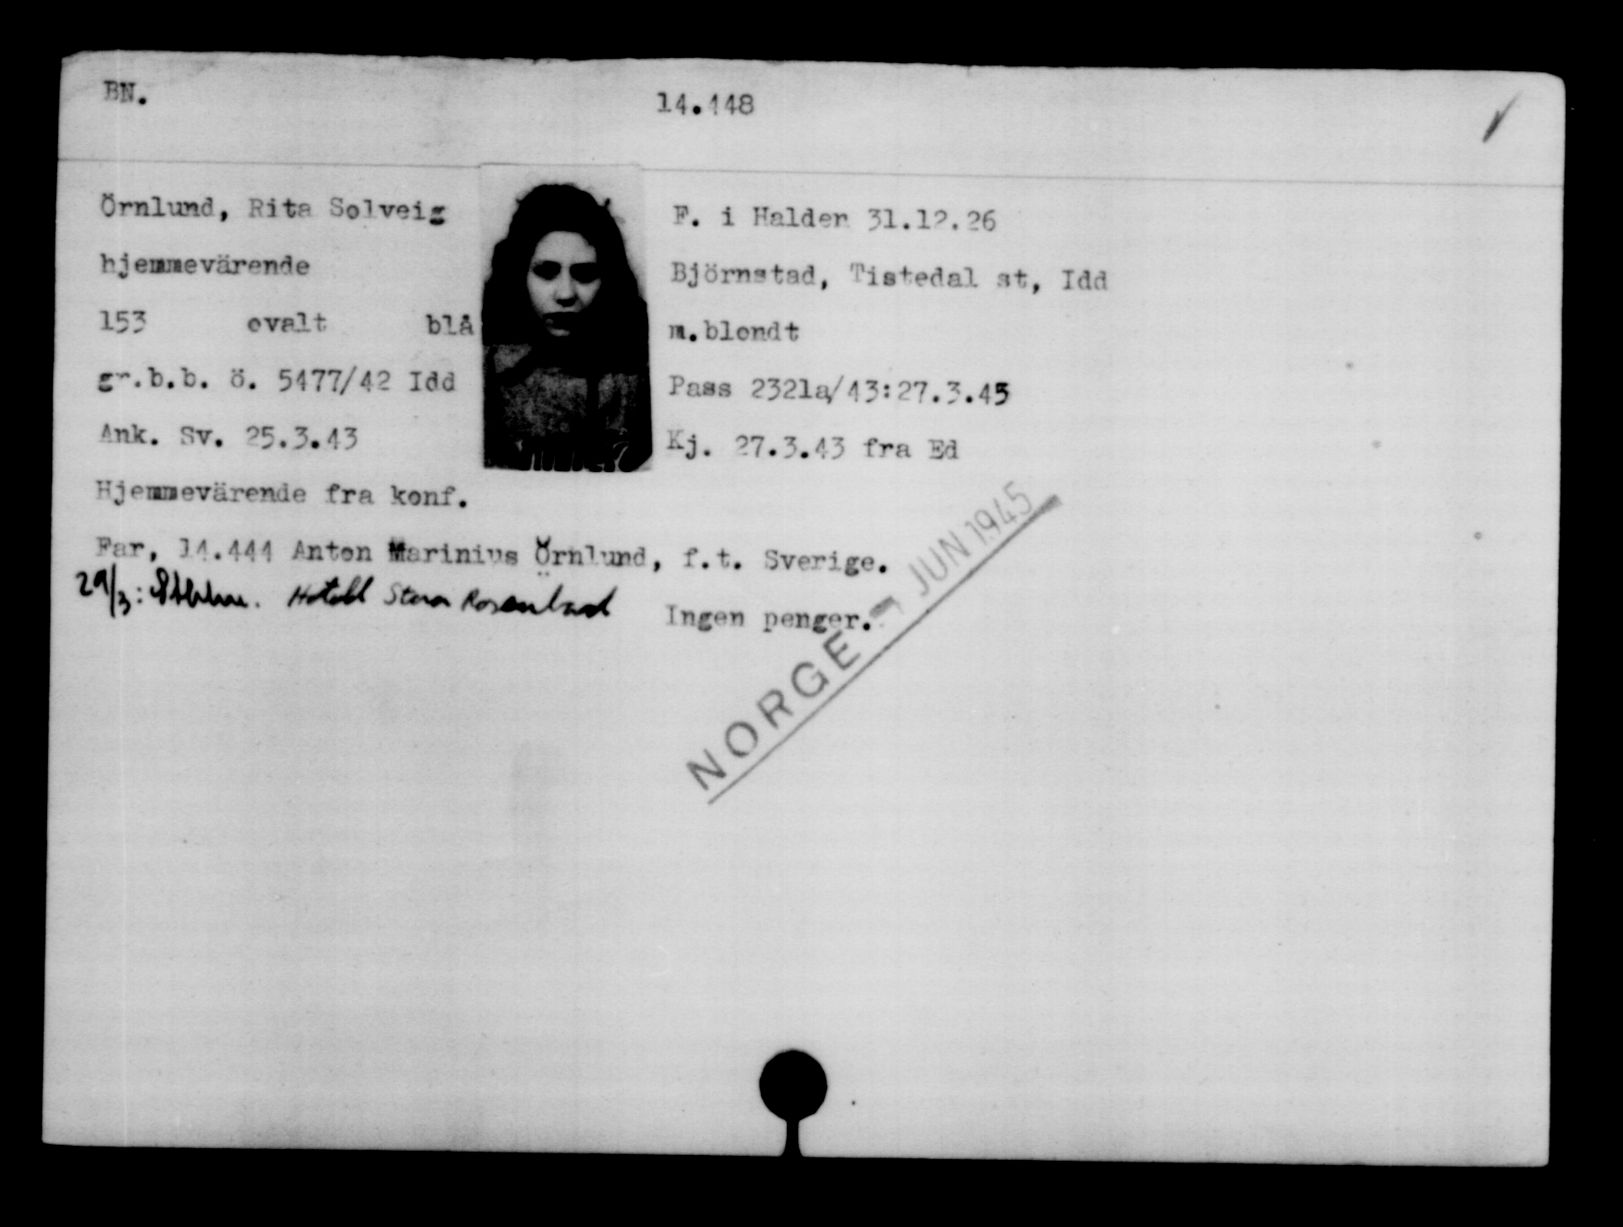 BN. 14.448
Örnlund, Rita Solveig F. i Halden 31.12.26
hjemmevärende Björnstad, Tistedal st, Idd
153 ovalt blå m.blondt
gr.b.b. ö. 5477/42 Idd Pass 2321a/43:27.3.45
Ank. Sv. 25.3.43 Kj. 27.3.43 fra Ed
Hjemmevärende fra konf.
Far, 14.444 Anton Marinius Örnlund, f.t. Sverige.
29/3: Sthlm. Hotell Stora Rosenbad Ingen penger.
NORGE - JUN 1945